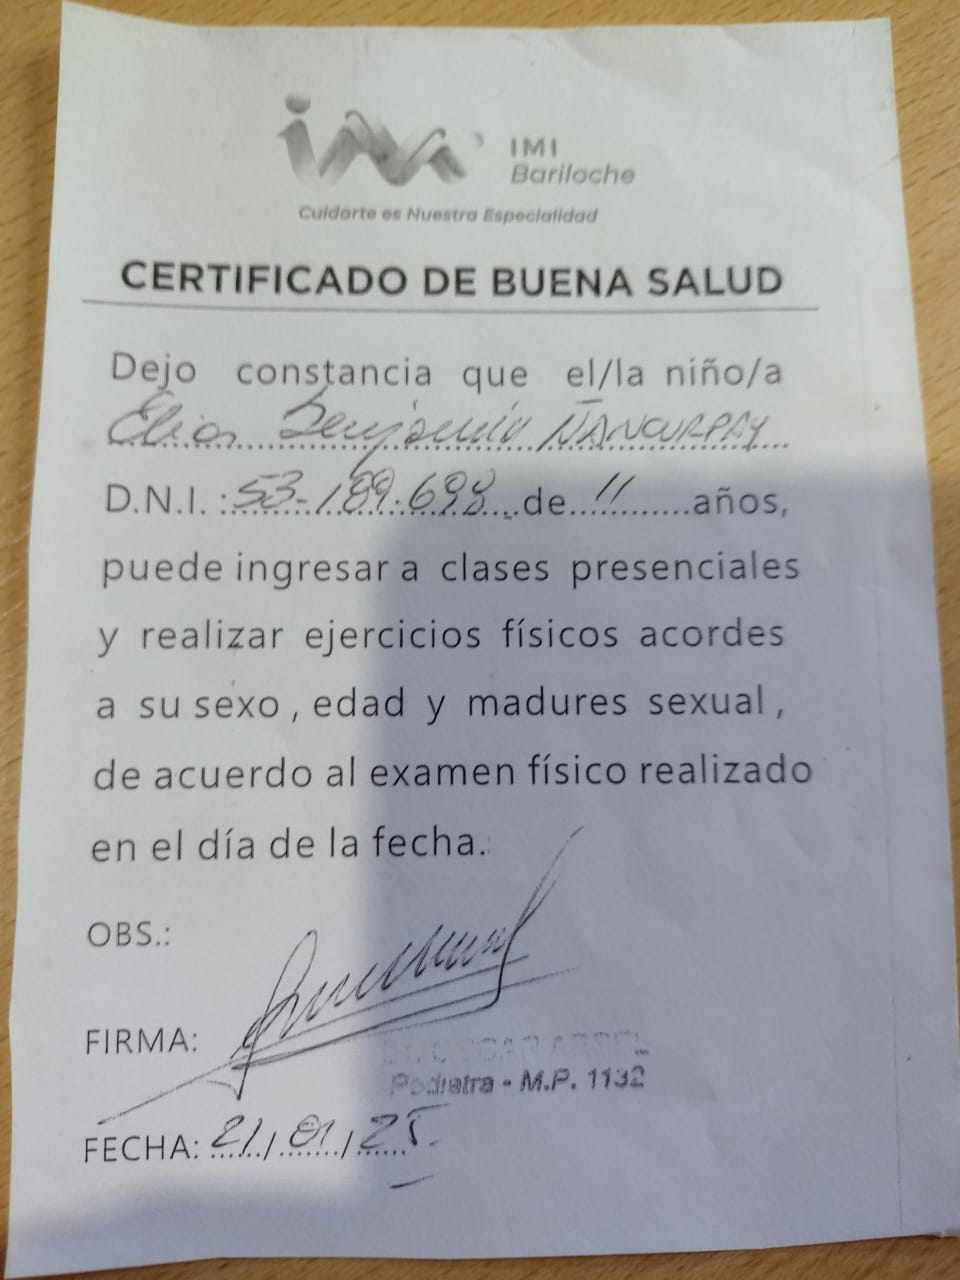 IMI
Bariloche
Cuidarte es Nuestra Especialidad
CERTIFICADO DE BUENA SALUD
Dejo constancia que el/la niño/a
Elias Benjamín ÑANCURPAY
D.N.I. : 53-189.698 de 11 años,
puede ingresar a clases presenciales
y realizar ejercicios físicos acordes
a su sexo, edad y madures sexual,
de acuerdo al examen físico realizado
en el día de la fecha.
OBS.:
FIRMA:
Pediatra - M.P. 1132
FECHA: 21/01/25.